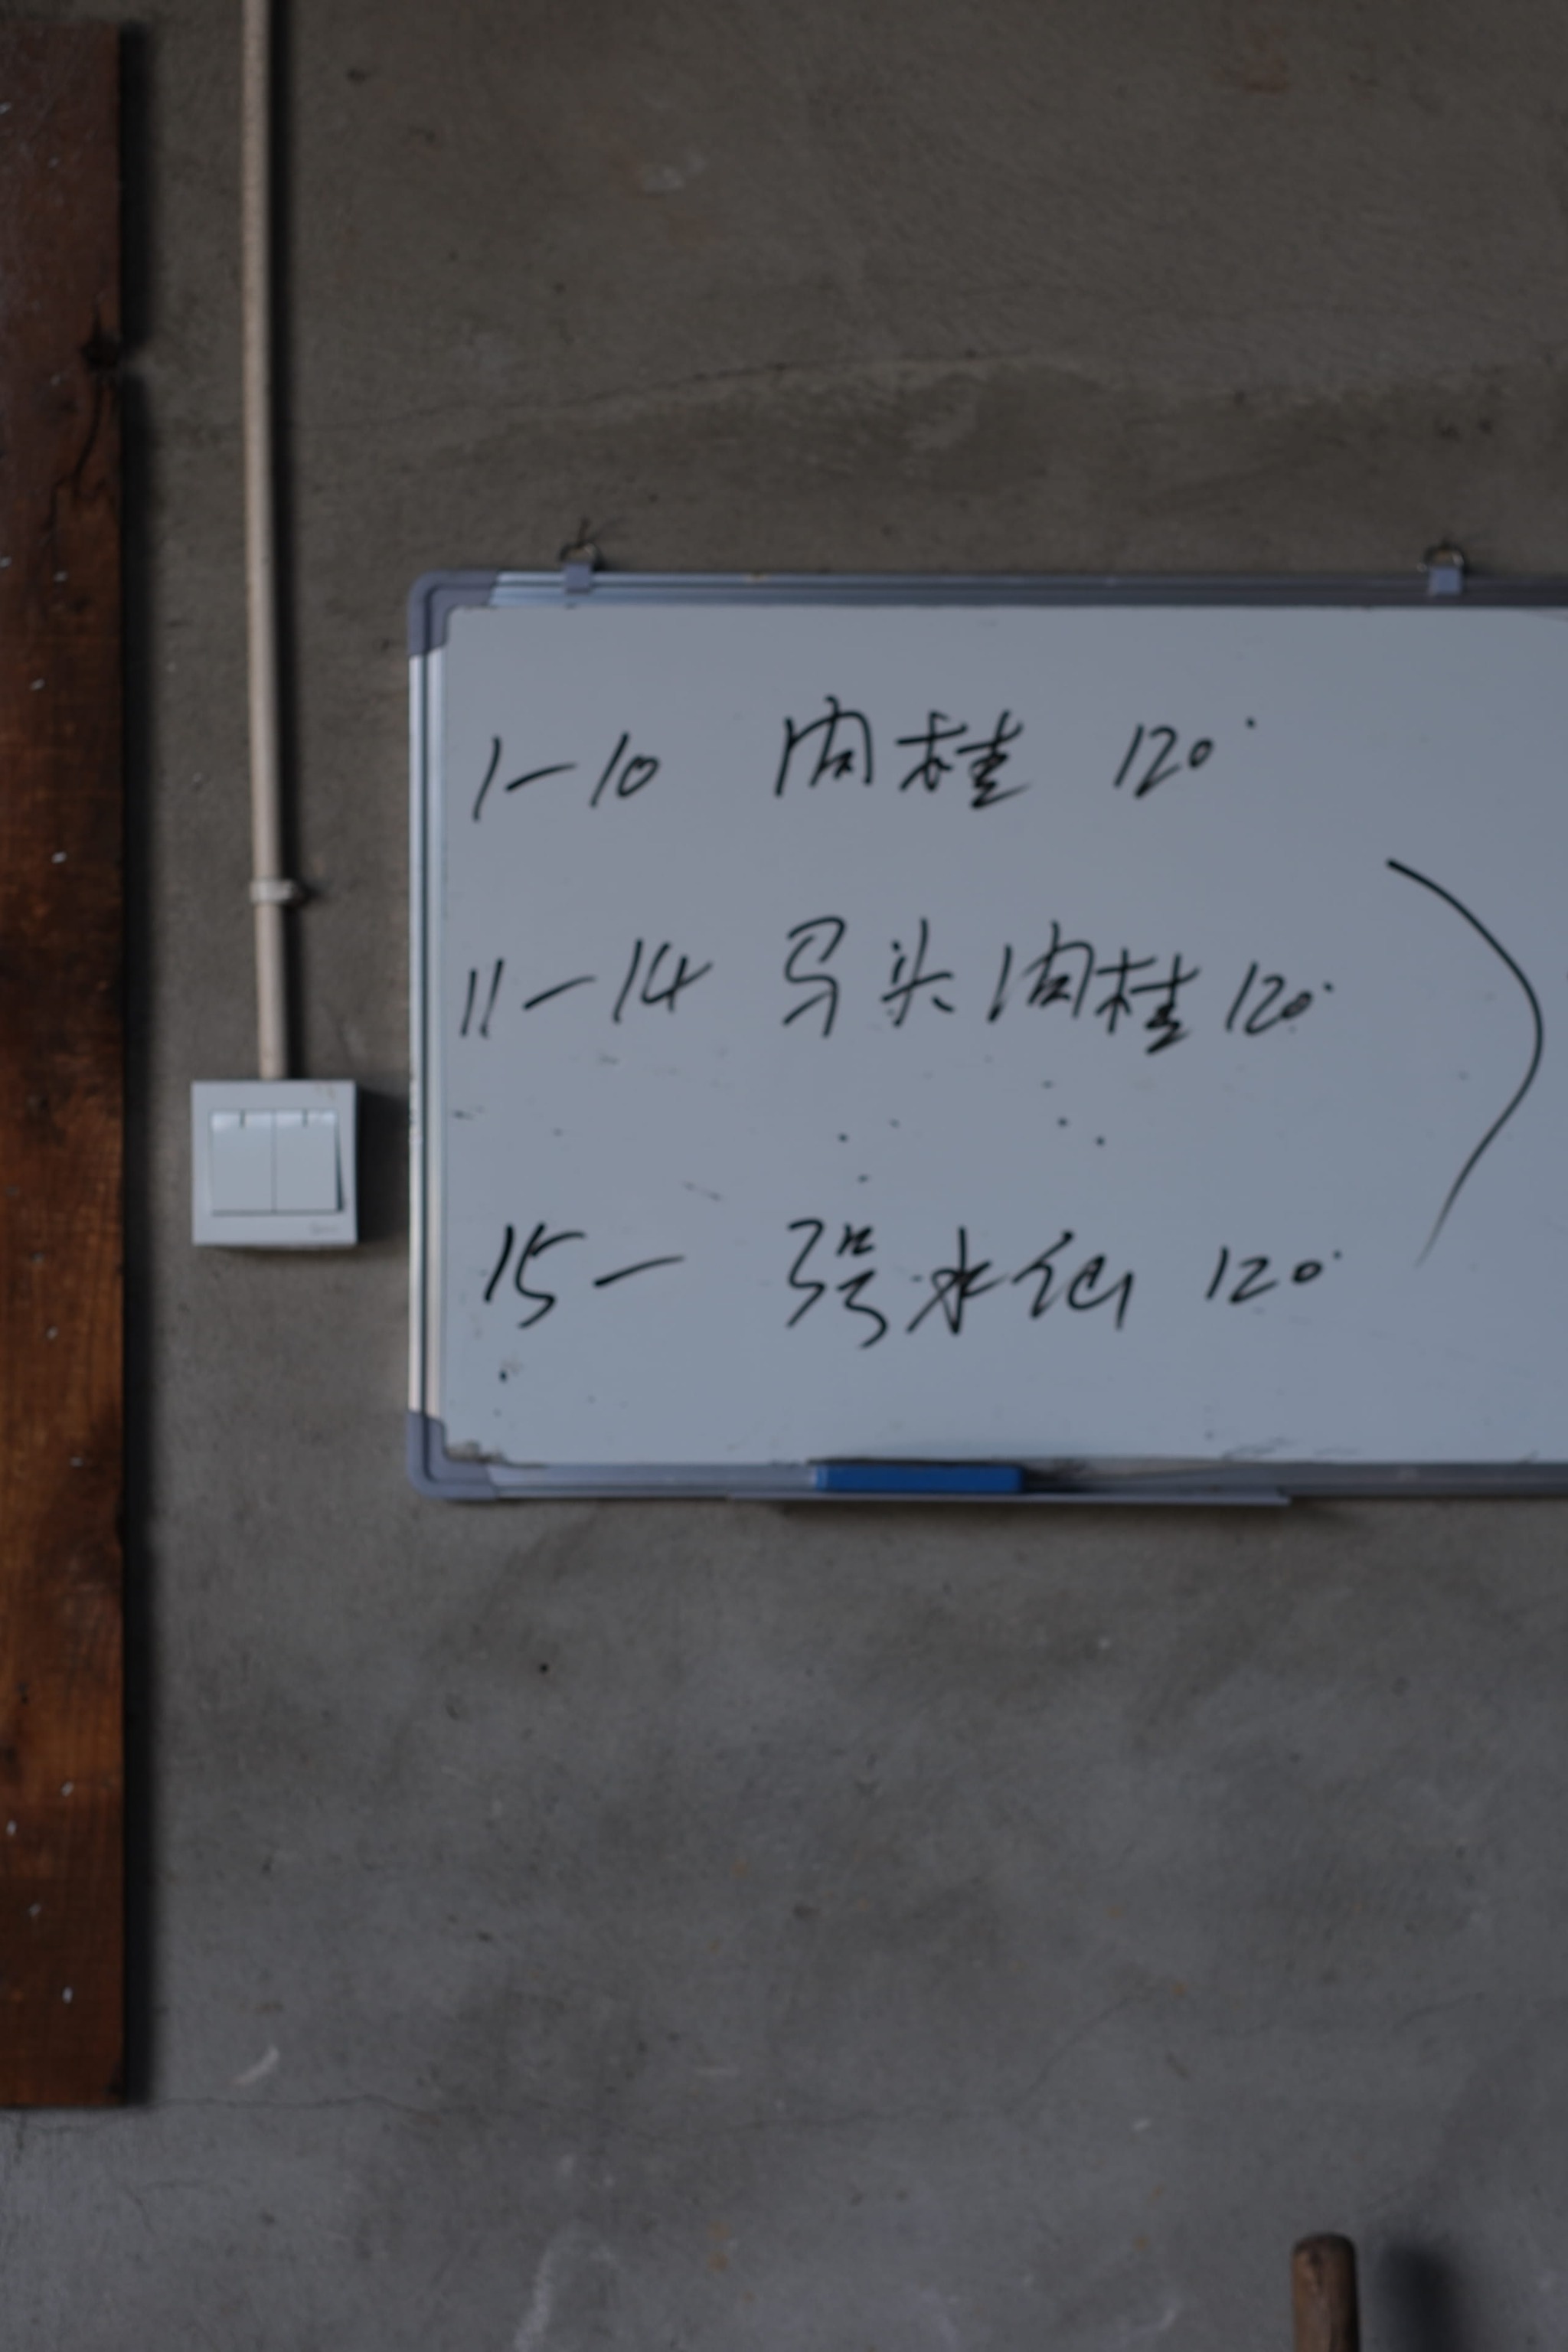 1-10 肉桂 120°
11-14 马头肉桂 120°
15- 水仙 120°